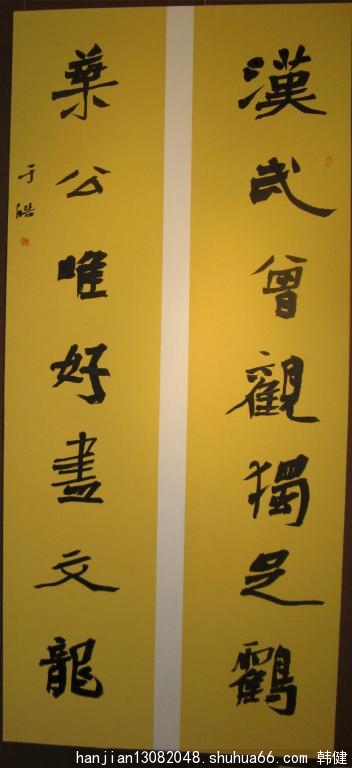 漢武曾觀獨足鸖
葉公唯好畫文龍
hanjian13082048.shuhua66.com 韩健